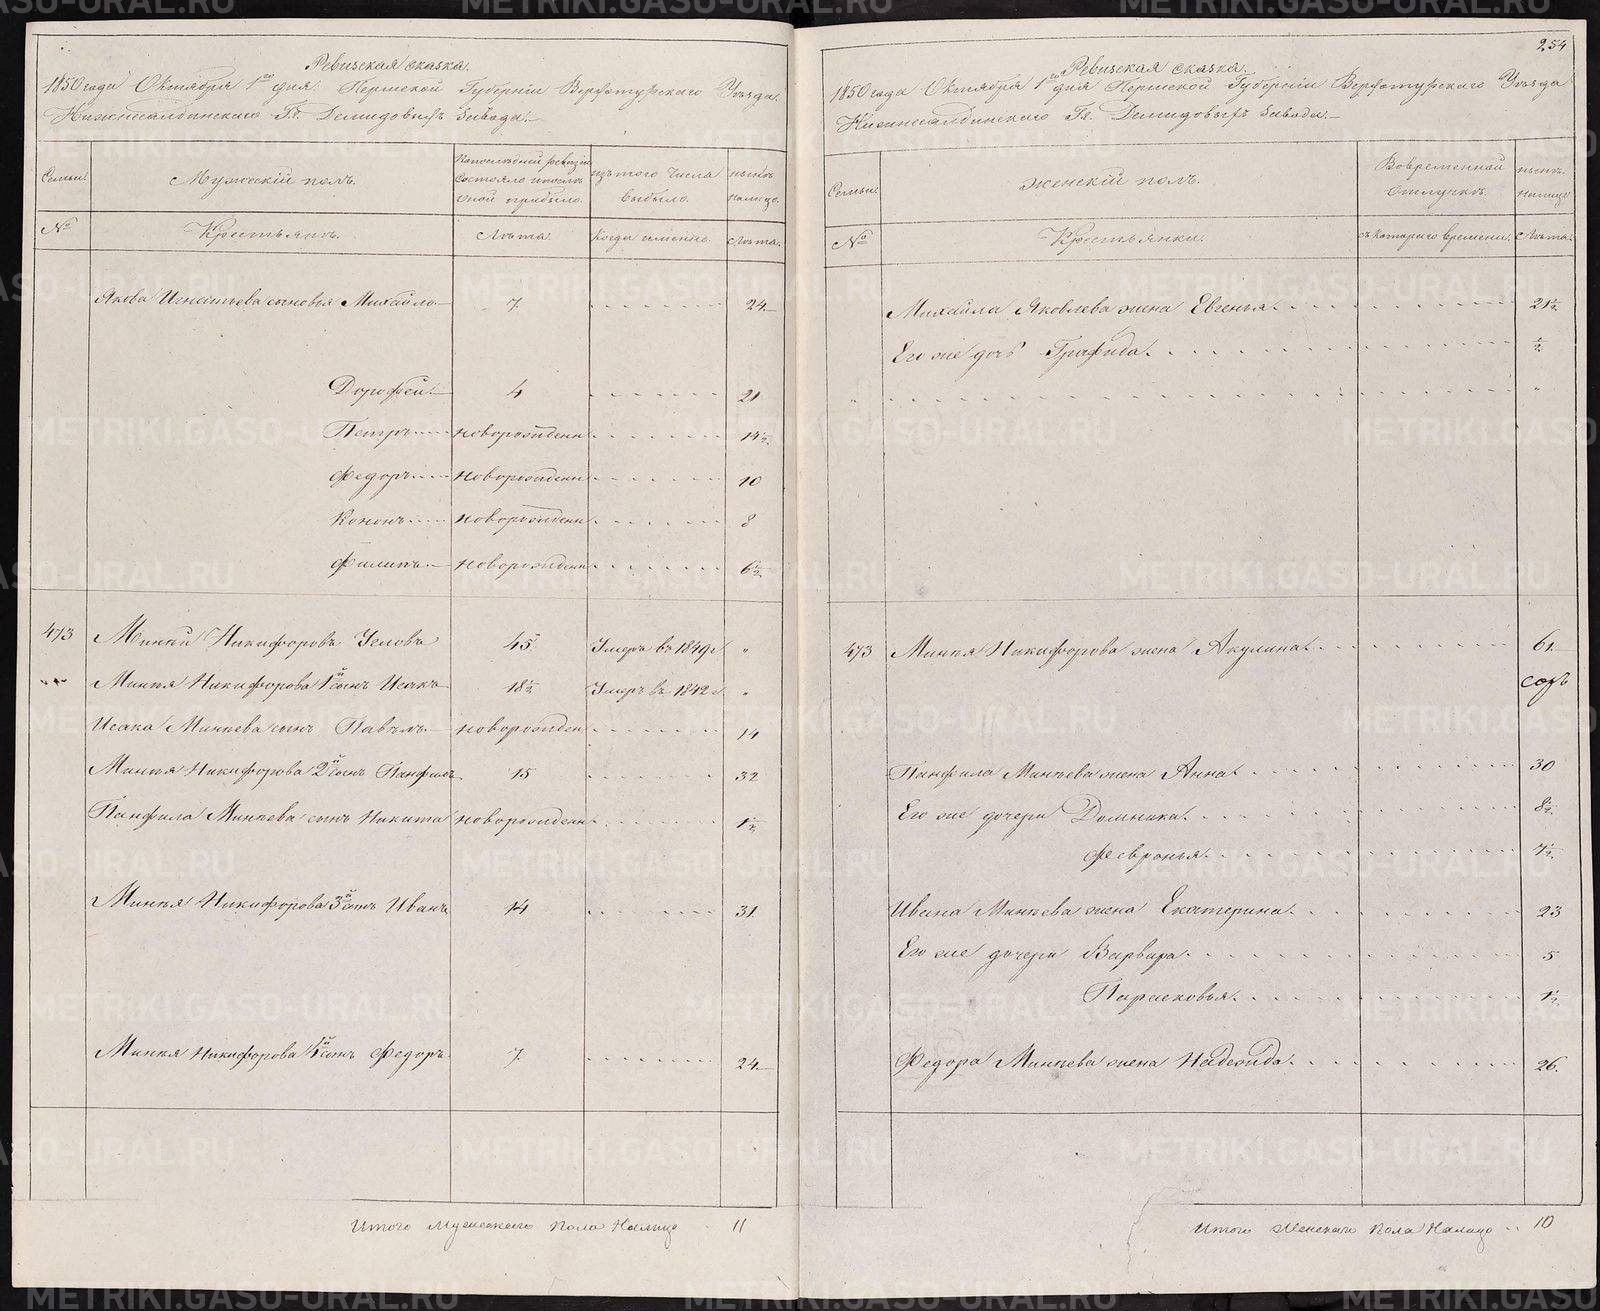 254
Ревизская сказка.
1850 года Октября 1го дня. Пермской Губернии Верхотурского Уезда
Нижнесалдинского Гг. Демидовыхъ Завода.
Семьи.
Мужескiй полъ.
По последней ревизiи состояло и после оной прибыло.
изъ того числа выбыло.
ныне на лицо.
№
Крестьяне.
Лета.
Когда именно.
Лета.
Якова Игнатьева сыновья Михайло 7 24
Дорофей 4 21
Петръ новорожден 14½
Федоръ новорожден 10
Кононъ новорожден 8
Филипъ новорожден 6½
473 Миней Никифоровъ 45 Умеръ въ 1849 г "
Минея Никифорова 1й сынъ Исакъ 18½ Умеръ въ 1842 г "
Исака Минеева сынъ Павелъ новорожден 14
Минея Никифорова 2й сынъ Панфилъ 15 32
Панфила Минеева сынъ Никита новорожден 1½
Минея Никифорова 3й сынъ Иванъ 14 31.
Минея Никифорова 4й сынъ Федоръ 7 24
Итого Мужескаго пола на лицо 11
Ревизская сказка.
1850 года Октября 1го дня Пермской Губернiи Верхотурскаго Уезда
Нижнесалдинского Гг. Демидовыхъ Завода.
Семьи.
Женскiй полъ.
Во временной отлучке.
ныне на лицо
№
Крестьянки.
съ котораго времени.
Лета.
Михайла Яковлева жена Евгенья 21½
Его же дочь Графида. ½
" "
473 Минея Никифорова жена Акулина 61
Панфила Минеева жена Анна 30
Его же дочери Домника 8½
Февронья 4½
Ивана Минеева жена Екатерина 23
Его же дочери Варвара 5
Парасковья 1½
Федора Минеева жена Надежда 26.
Итого Женскаго пола на лицо 10
METRIKI.GASO-URAL.RU